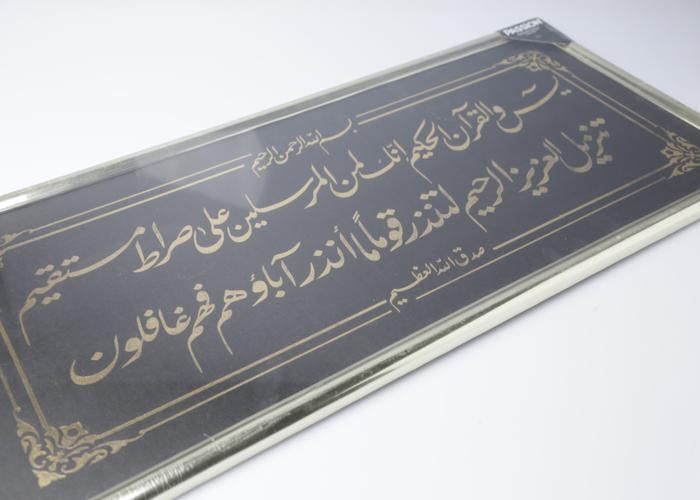 PASSION
بسم الله الرحمن الرحيم
يس والقرآن الحكيم انك لمن المرسلين على صراط مستقيم
تنزيل العزيز الرحيم لتنذر قوماً أنذر آباؤهم فهم غافلون
صدق الله العظيم